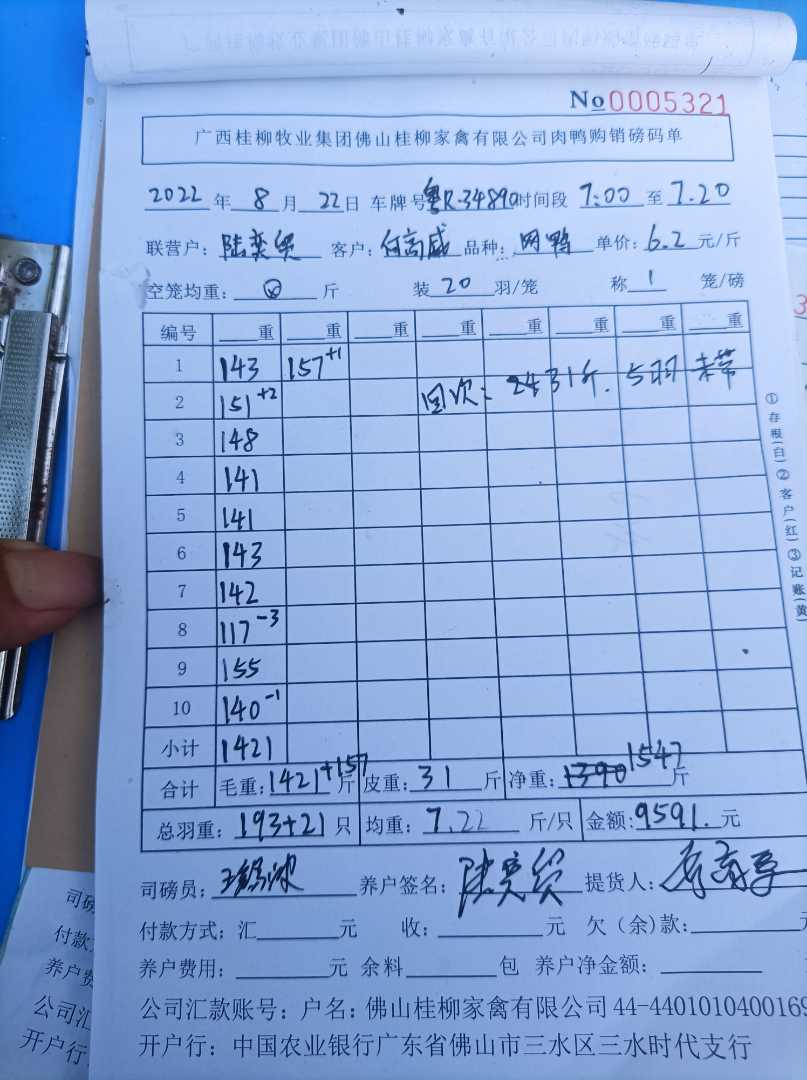 No 0005321
广西桂柳牧业集团佛山桂柳家禽有限公司肉鸭购销磅码单
2022年8月22日 车牌号粤R-34890时间段7:00至7.20
联营户：陆奕贤 客户：何高盛 品种：网鸭 单价：6.2元/斤
空笼均重：⊗斤 装20羽/笼 称1笼/磅
编号 重 重 重 重 重 重 重 重
1 143 157+1
2 151+2 回次：2431斤.5羽未带
3 148
4 141
5 141
6 143
7 142
8 117-3
9 155
10 140-1
小计 1421
合计 毛重：1421+157斤 皮重：31斤 净重：1390 1547斤
总羽重：193+21只 均重：7.22斤/只 金额：9591.元
司磅员： 养户签名：陆奕贤 提货人：
付款方式：汇 元 收： 元 欠（余）款：
养户费用： 元 余料 包 养户净金额：
公司汇款账号：户名：佛山桂柳家禽有限公司44-4401010400169
开户行：中国农业银行广东省佛山市三水区三水时代支行
①存根(白)②客户(红)③记账(黄)
司磅
付款
养户费
公司汇
开户行